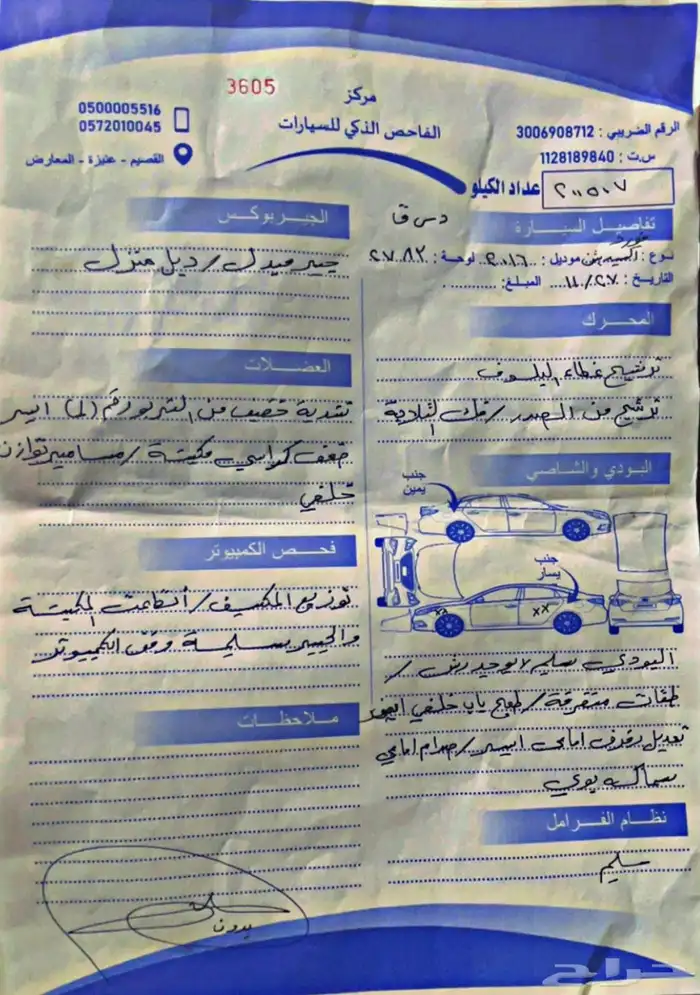 3605
مركز
الفاحص الذكي للسيارات
0500005516
0572010045
القصيم - عنيزة - المعارض
الرقم الضريبي : 3006908712
س.ت : 1128189840
عداد الكيلو ٢٠٠٥٠٧
تفاصيل السيارة
د س ق
فورد
نوع : اكسبدشن موديل : ٢٠١٦ لوحة : ٢٧٨٢
التاريخ : ١١/٢٧ المبلغ :
المحرك
ترشيح غطاء البلوف
ترشيح من الصدر / فك البلادية
البودي والشاصي
جنب
يمين
جنب
يسار
xx
xx
البودي سليم لايوجد رش /
طقات متفرقة / طعج باب خلفي ايسر
تعديل رفرف امامي ايسر / صدام امامي
سماكة بوي
نظام الفرامل
سليم
الجيربوكس
جير ميدل / ديل منزل
العضلات
تفدية خفيف من التربو رقم (١) ايسر
ضعف كراسي مكينة / مسامير توازن
خلفي
فحص الكمبيوتر
توزيع المكسيف / انظمة المكينة
والجير سليمة وفق الكمبيوتر
ملاحظات
بدون
حراج